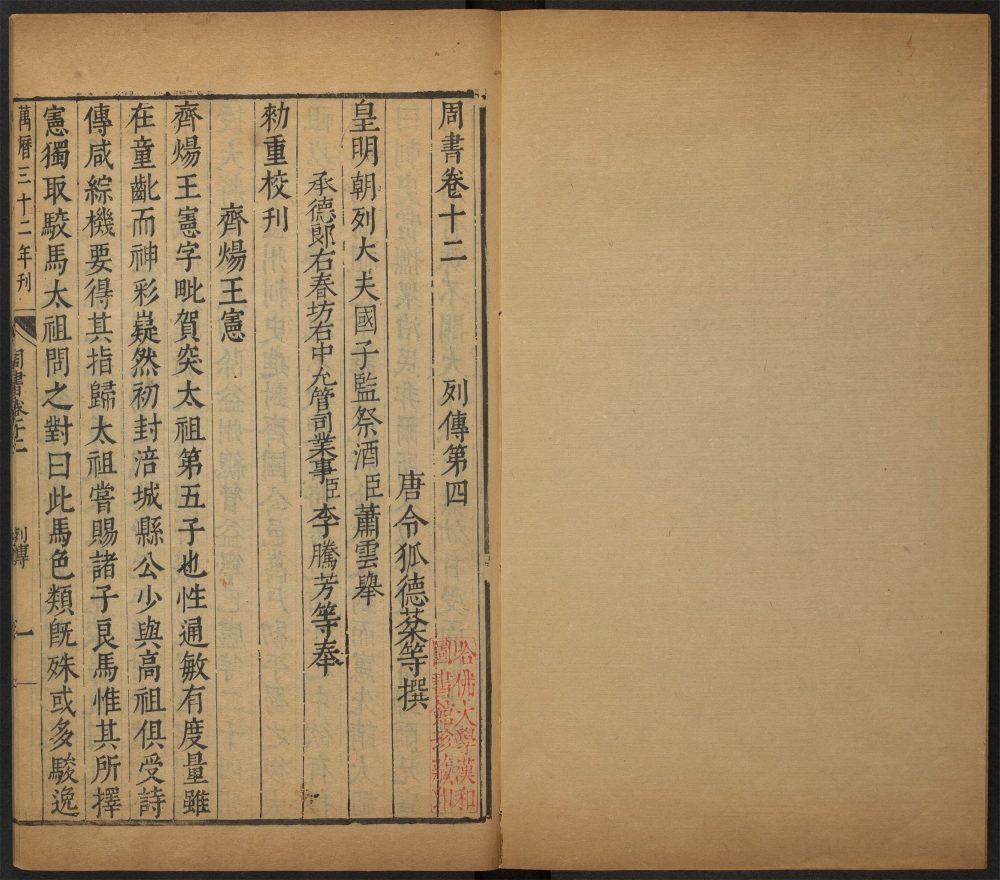 周書卷十二　列傳第四
唐令狐德棻等撰
皇明朝列大夫國子監祭酒臣蕭雲舉
承德郎右春坊右中允管司業事臣李騰芳等奉
勑重校刊
齊煬王憲
齊煬王憲字毗賀突太祖第五子也性通敏有度量雖
在童齔而神彩嶷然初封涪城縣公少與高祖俱受詩
傳咸綜機要得其指歸太祖嘗賜諸子良馬惟其所擇
憲獨取駮馬太祖問之對曰此馬色類旣殊或多駿逸
萬曆三十二年刊
周書卷十二
列傳
一
哈佛大學漢和
圖書館珍藏印